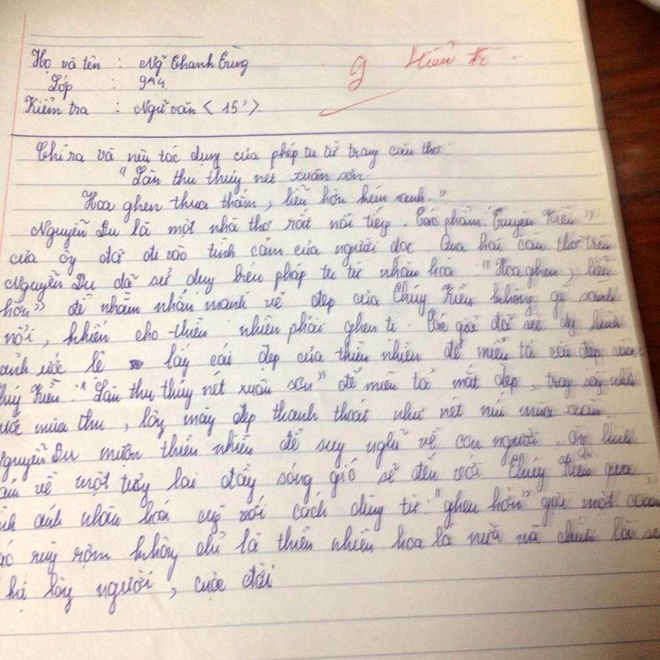 Họ và tên : Ngô Thanh Tùng
Lớp : 9A4
Kiểm tra : Ngữ văn < 15' >
9
Chỉ ra và nêu tác dụng của phép tu từ trong câu thơ:
"Làn thu thủy nét xuân sơn
Hoa ghen thua thắm, liễu hờn kém xanh."
Nguyễn Du là một nhà thơ rất nổi tiếng. Tác phẩm "Truyện Kiều"
của ông đã đi vào tình cảm của người đọc. Qua hai câu thơ trên
Nguyễn Du đã sử dụng biện pháp tu từ nhân hóa: "Hoa ghen, liễu
hờn" để nhằm nhấn mạnh vẻ đẹp của Thúy Kiều không gì sánh
nổi, khiến cho thiên nhiên phải ghen tị. Tác giả đã sử dụng hình
ảnh ước lệ lấy cái đẹp của thiên nhiên để miêu tả cái đẹp của
Thúy Kiều: "Làn thu thủy nét xuân sơn" để miêu tả mắt đẹp, trong sáng như
nước mùa thu, lông mày đẹp thanh thoát như nét núi mùa xuân.
Nguyễn Du mượn thiên nhiên để suy nghĩ về con người. hình
về một tương lai đầy sóng gió sẽ đến với Thúy Kiều qua
ảnh nhân hóa cùng với cách dùng từ: "ghen hờn" gợi một
không chỉ là thiên nhiên hoa lá nữa mà chính là
lòng người, cuộc đời